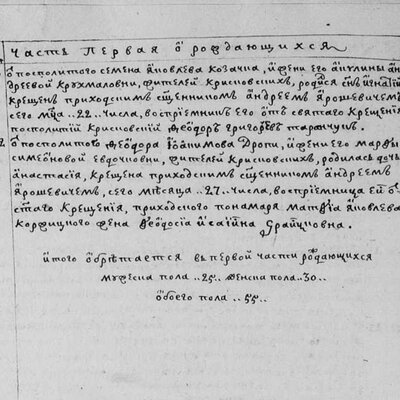 Часть Первая ѽ рождающихся
ѽ посполитого семена Яковлева козачка, и жени его акулины ан
дреевой крухмаловни, жителей крисновскихъ, родися снъ игнатій
крещенъ приходскимъ сщенникомъ андреемъ Ярошевичемъ
сего мца ..22.. числа, воспріемникъ его ѽтъ святаго крещенія
посполитій крисновскій феодоръ григоріевъ
ѽ посполитого феодора Іоакимова и жени его марѳы
симеоновой евдочиовни, жителей крисновскихъ, родилась дочь
анастасія, крещена приходскимъ сщенникомъ андреемъ
Ярошевичемъ, сего месяца ..27.. числа, воспріемница ей ѽ
стаго крещенія, приходского понамаря матвія Яковлева
жена феодосія
итого обретается въ первой части рождающихся
мужеска пола ..25.. женска пола ..30..
ѽбоего пола ..55..